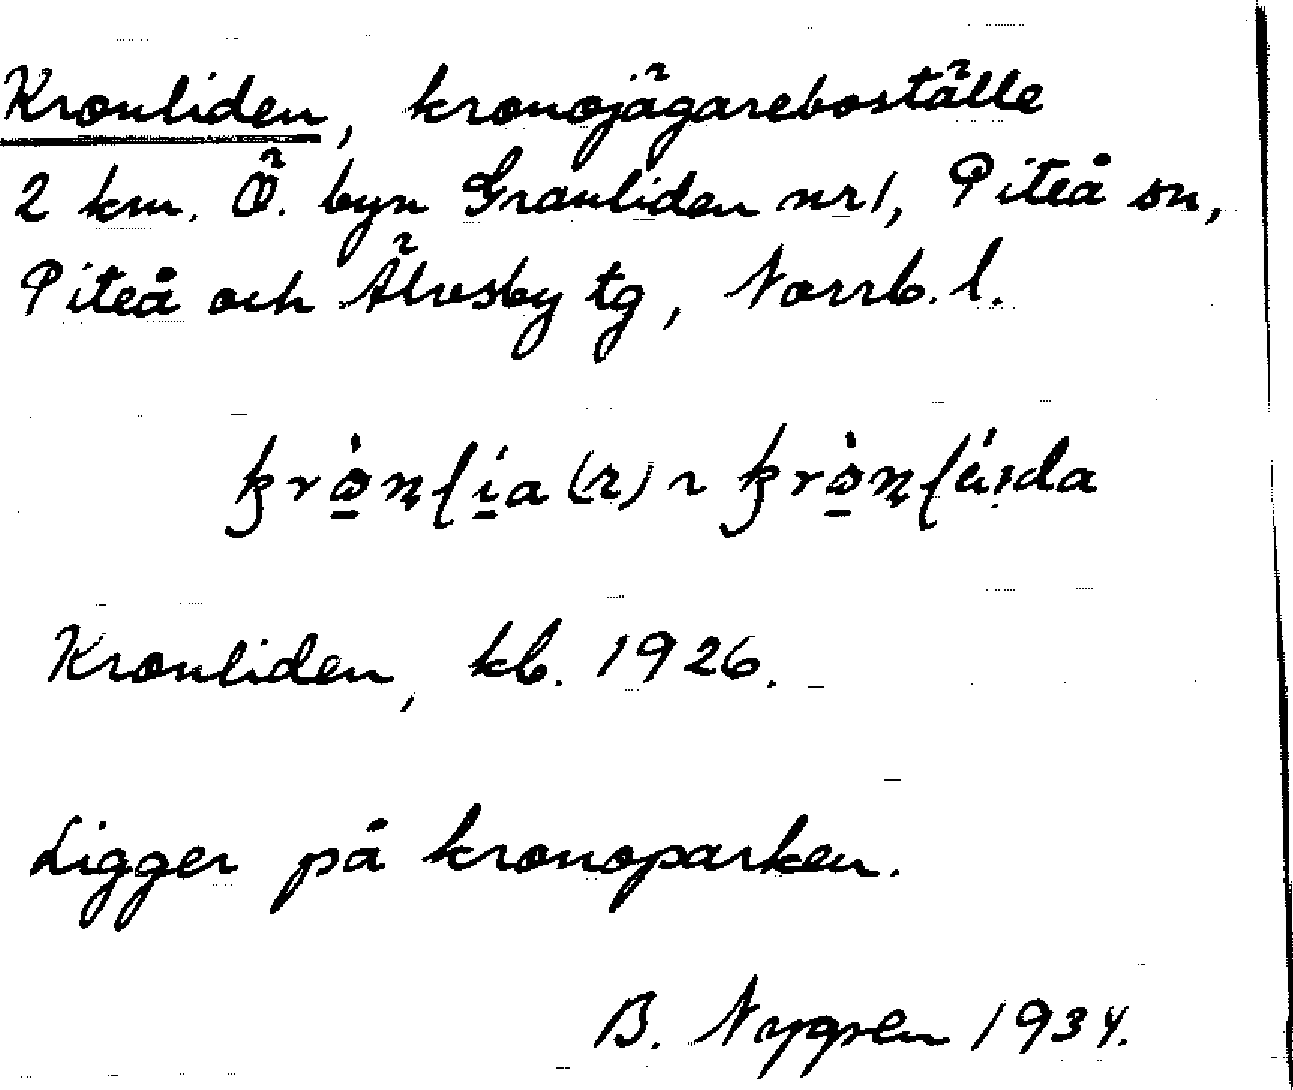 Kronliden, kronojägareboställe
2 km. Ö. byn Granliden nr 1, Piteå sn,
Piteå och Älvsby tg, Norrb. l.
Kronliden, kb. 1926.
Ligger på kronoparken.
B. Nygren 1934.